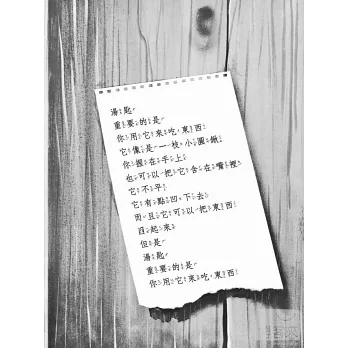 湯匙
重要的是
你用它來吃東西
它像是一枝小圓鍬
你握在手上
也可以把它含在嘴裡
它不平
它有點凹下去
而且它可以把東西
舀起來
但是
湯匙
重要的是
你用它來吃東西